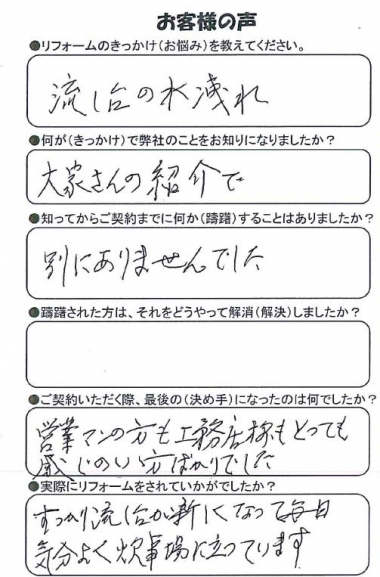 お客様の声
●リフォームのきっかけ（お悩み）を教えてください。
流し台の水洩れ
●何が（きっかけ）で弊社のことをお知りになりましたか？
大家さんの紹介で
●知ってからご契約までに何か（躊躇）することはありましたか？
別にありませんでした
●躊躇された方は、それをどうやって解消（解決）しましたか？
●ご契約いただく際、最後の（決め手）になったのは何でしたか？
営業マンの方も工務店様もとっても
感じのいい方ばかりでした
●実際にリフォームをされていかがでしたか？
すっかり流し台が新しくなって毎日
気分よく炊事場に立っています